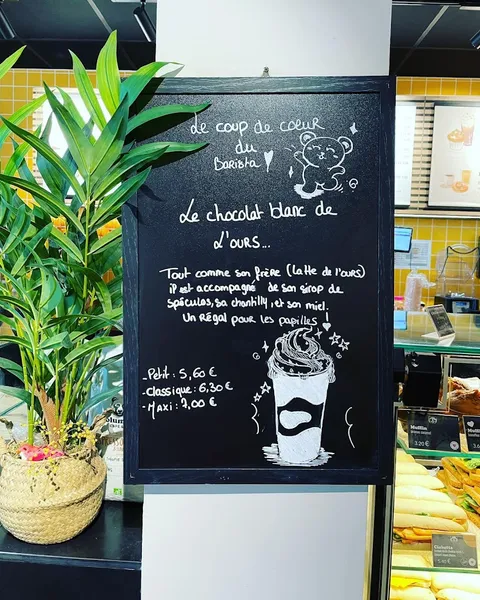 Le coup de coeur
du
Barista
Le chocolat blanc de
L'ours...
Tout comme son frère (latte de l'ours)
il est accompagné de son sirop de
spéculos, sa chantilly, et son miel.
Un régal pour les papilles !
- Petit : 5,60 €
- Classique : 6,30 €
- Maxi : 7,00 €
Muffin
3.20 €
Muffin
Ciabatta